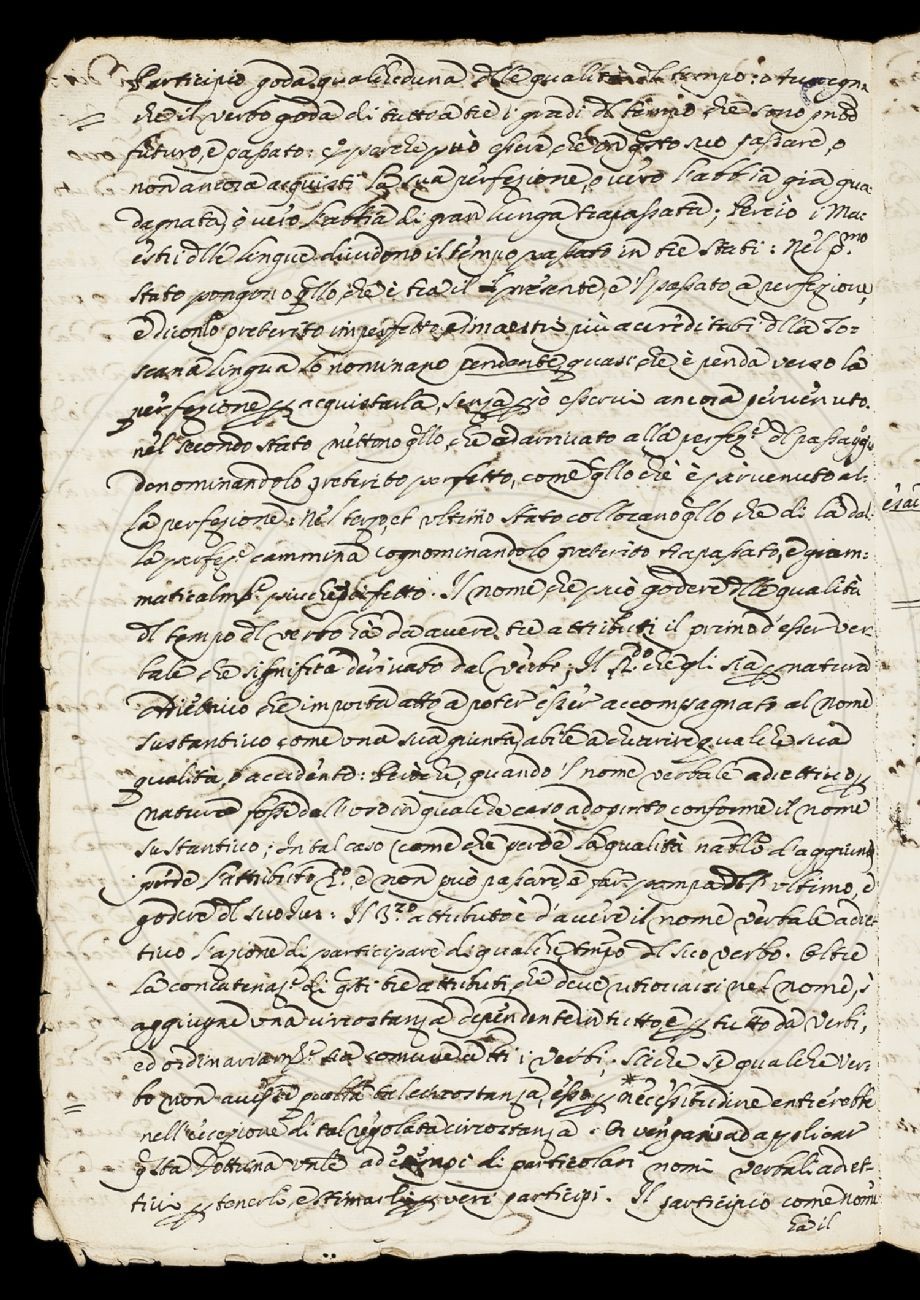 Participio goda qualcheduna dlle qualità dl tempo: o
che il verbo goda di tutto a tre i gradi dl tempo che sono
futuro, e passato: e può essere che suo passare, o
non ancora acquisti la sua perfezione, o vero l'abbia già gua-
dagnata, o vero l'abbia di gran lunga trapassata; Perciò i Ma-
estri dlle lingue dividono il tempo passato in tre stati: Nel p.mo
stato pongono qllo che è tra il presente, e 'l passato a perfezione,
e dicolo preterito imperfetto, e i maestri più accreditati dlla To=
scana lingua lo nominano pendente, quasi che è penda verso la
perfezione acquistarla, senza esservi ancora pervenuto.
nel secondo stato mettono qllo, che è arrivato alla perfez.e dl passaggio
denominandolo preterito perfetto, come qllo che è pervenuto al-
la perfezione: Nel terzo, et ultimo stato collocano qllo che di là dal-
la perfez.e cammina cognominandolo preterito trapassato, e gram=
maticalm.e più che perfetto. Il nome, che può godere dlle qualità
dl tempo dl verbo ha da avere tre attributi il primo d'esser ver-
bale che significa derivato dal verbo; Il 2.do che egli sia natura
Adiettivo che importa atto a poter esser accompagnato al nome
sustantivo come una sua giunta abile a chiarire qualche sua
qualità, o accidente: Perciò che, quando 'l nome verbale adiettivo
natura fosse dall'uso in qualche caso adoprato conforme il nome
sustantivo; In tal caso come che perde la qualità d'aggiunto
perde l'attributo 2.o e non può passare a far pompa dell'ultimo, e
godere dl suo Jus. Il 3.zo attributo è d'avere il nome verbale adiet-
tivo l'azione di participare di qualche tmpo dl suo verbo. Oltre
la concatenaz.e di qsti tre attributi, che deve ritrovarsi nel nome, si
aggiugne una circostanza dependente in tutto e tutto da verbi,
ed ordinariam.e comune a tti i verbi; Siche se qualche ver-
bo non avesse tale circostanza, esso necessitudine entrerebbe
nell'eccezione di tal regolata circostanza. Or vengasi ad applicar
qsta Dottrina ad esempi di particolari nomi verbali adiet-
tivi tenerli, e stimarli veri participi. Il participio come nome
ha il